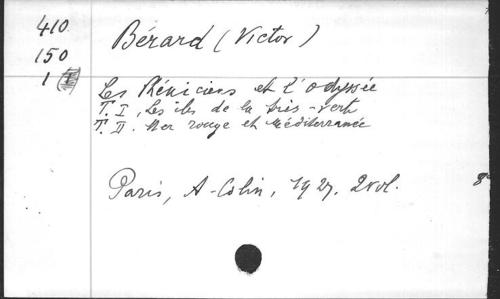 410
150
1
Bérard (Victor)
Les Phéniciens et l'odyssée
T. I, Les iles de la très-verte
T. II. Mer rouge et Méditerranée
Paris, A-Colin, 1927. 2vol.
8°